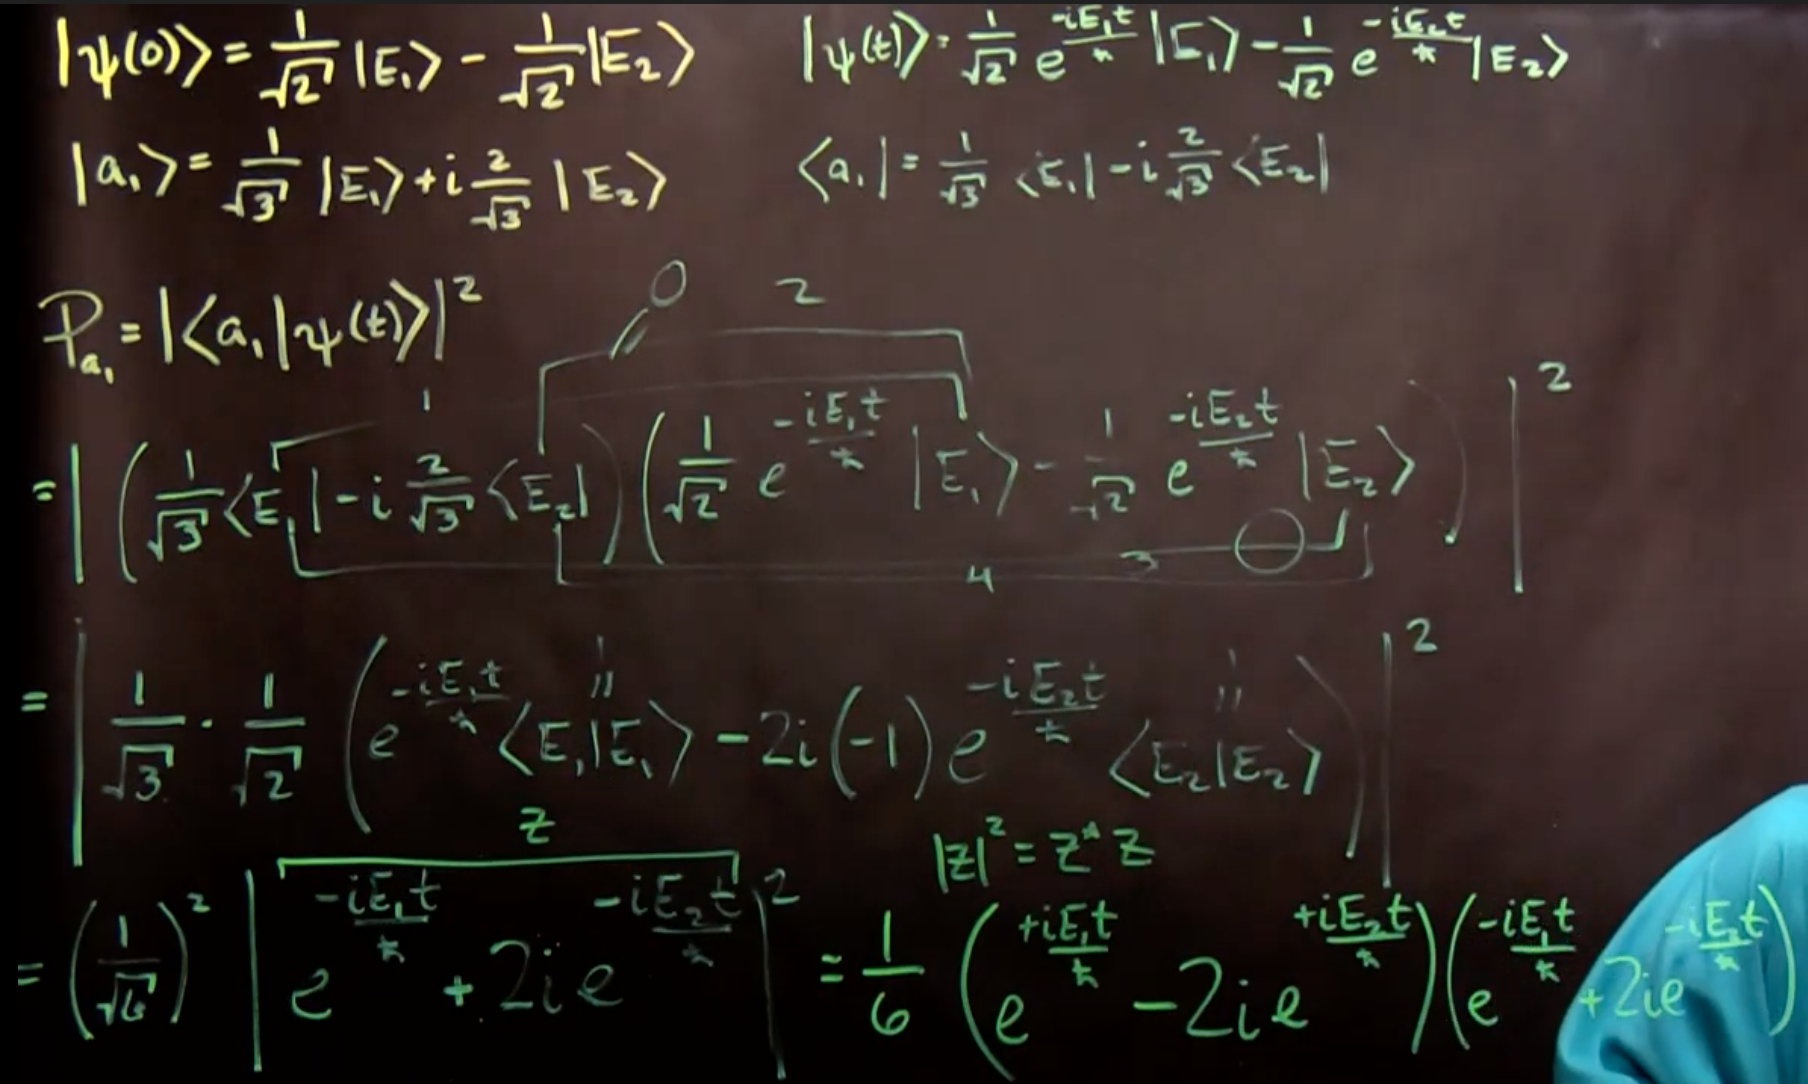 |ψ(0)⟩ = 1/√2 |E₁⟩ - 1/√2 |E₂⟩   |ψ(t)⟩ = 1/√2 e^(-iE₁t/ħ) |E₁⟩ - 1/√2 e^(-iE₂t/ħ) |E₂⟩
|a₁⟩ = 1/√3 |E₁⟩ + i 2/√3 |E₂⟩   ⟨a₁| = 1/√3 ⟨E₁| - i 2/√3 ⟨E₂|
0 2
P_a₁ = |⟨a₁|ψ(t)⟩|²
1
= |(1/√3 ⟨E₁| - i 2/√3 ⟨E₂|)(1/√2 e^(-iE₁t/ħ) |E₁⟩ - 1/√2 e^(-iE₂t/ħ) |E₂⟩)|²
4 3 0
1 1
= |1/√3 · 1/√2 (e^(-iE₁t/ħ) ⟨E₁|E₁⟩ - 2i(-1) e^(-iE₂t/ħ) ⟨E₂|E₂⟩)|²
z   |z|² = z* z
= (1/√6)² |e^(-iE₁t/ħ) + 2ie^(-iE₂t/ħ)|² = 1/6 (e^(+iE₁t/ħ) - 2ie^(+iE₂t/ħ))(e^(-iE₁t/ħ) + 2ie^(-iE₂t/ħ))